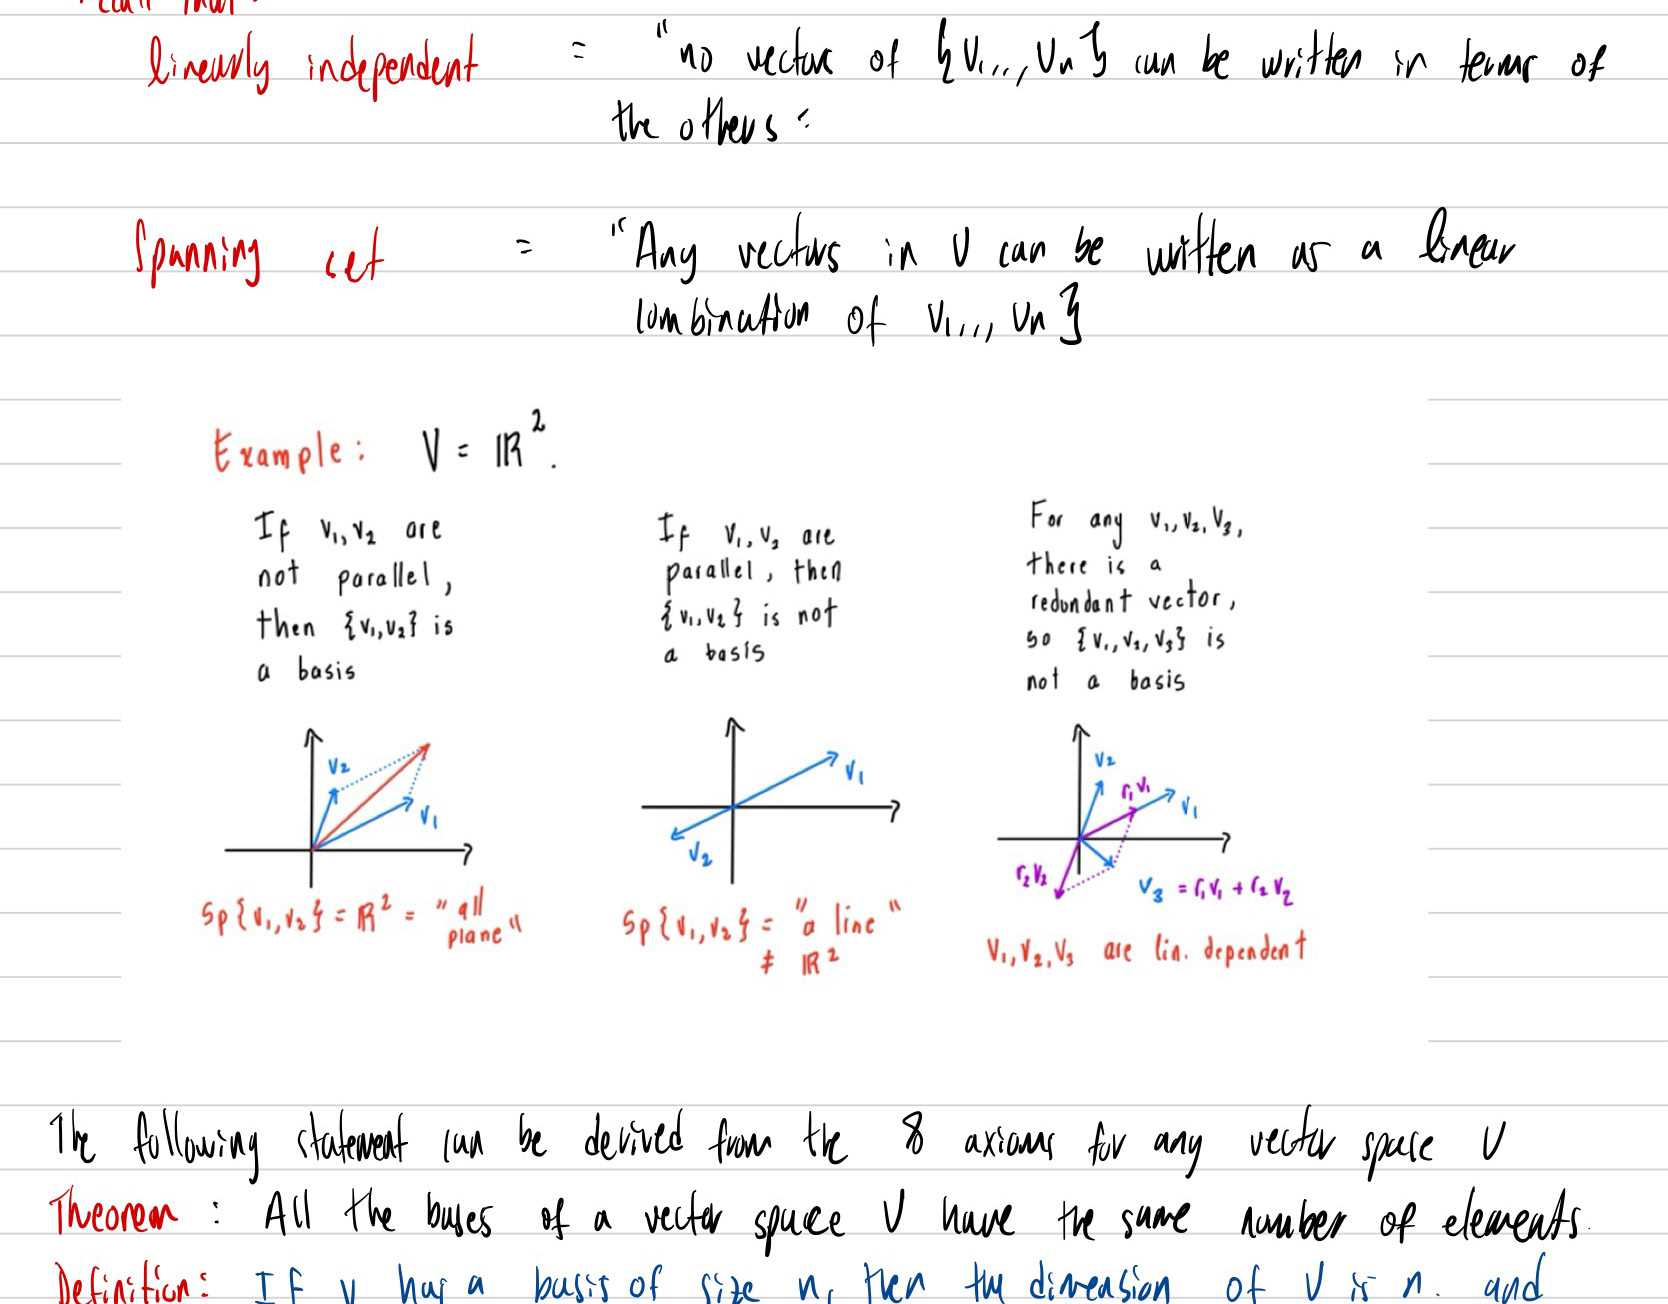 linearly independent = "no vector of {v1,..., vn} can be written in terms of
the others"
Spanning set = "Any vectors in V can be written as a linear
combination of v1..., vn}
Example: V = ℝ².
If v1, v2 are
not parallel,
then {v1, v2} is
a basis
v2
v1
Sp{v1, v2} = ℝ² = "all
plane"
If v1, v2 are
parallel, then
{v1, v2} is not
a basis
v1
v2
Sp{v1, v2} = "a line"
≠ ℝ²
For any v1, v2, v3,
there is a
redundant vector,
so {v1, v2, v3} is
not a basis
v2
r1v1
v1
r2v2
v3 = r1v1 + r2v2
v1, v2, v3 are lin. dependent
The following statement can be derived from the 8 axioms for any vector space V
Theorem: All the bases of a vector space V have the same number of elements.
Definition: If V has a basis of size n, then the dimension of V is n. and